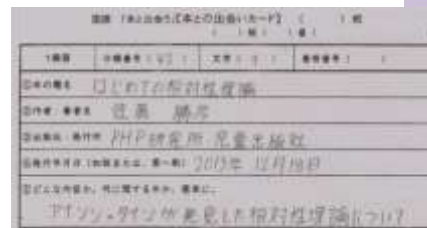 国語 「本と出会う」【本との出会いカード】 ( ) 組
( ) 組 ( ) 番 ( )
1冊目
①本の題名 はじめての相対性理論
②作者・著者 佐藤 勝彦
③出版社・発行所 PHP研究所 児童出版社
④発行年月日 (初版または、第一刷) 2013年 12月18日
⑤どんな内容か。何に関する本か。簡単に。
アインシュタインが発見した相対性理論について